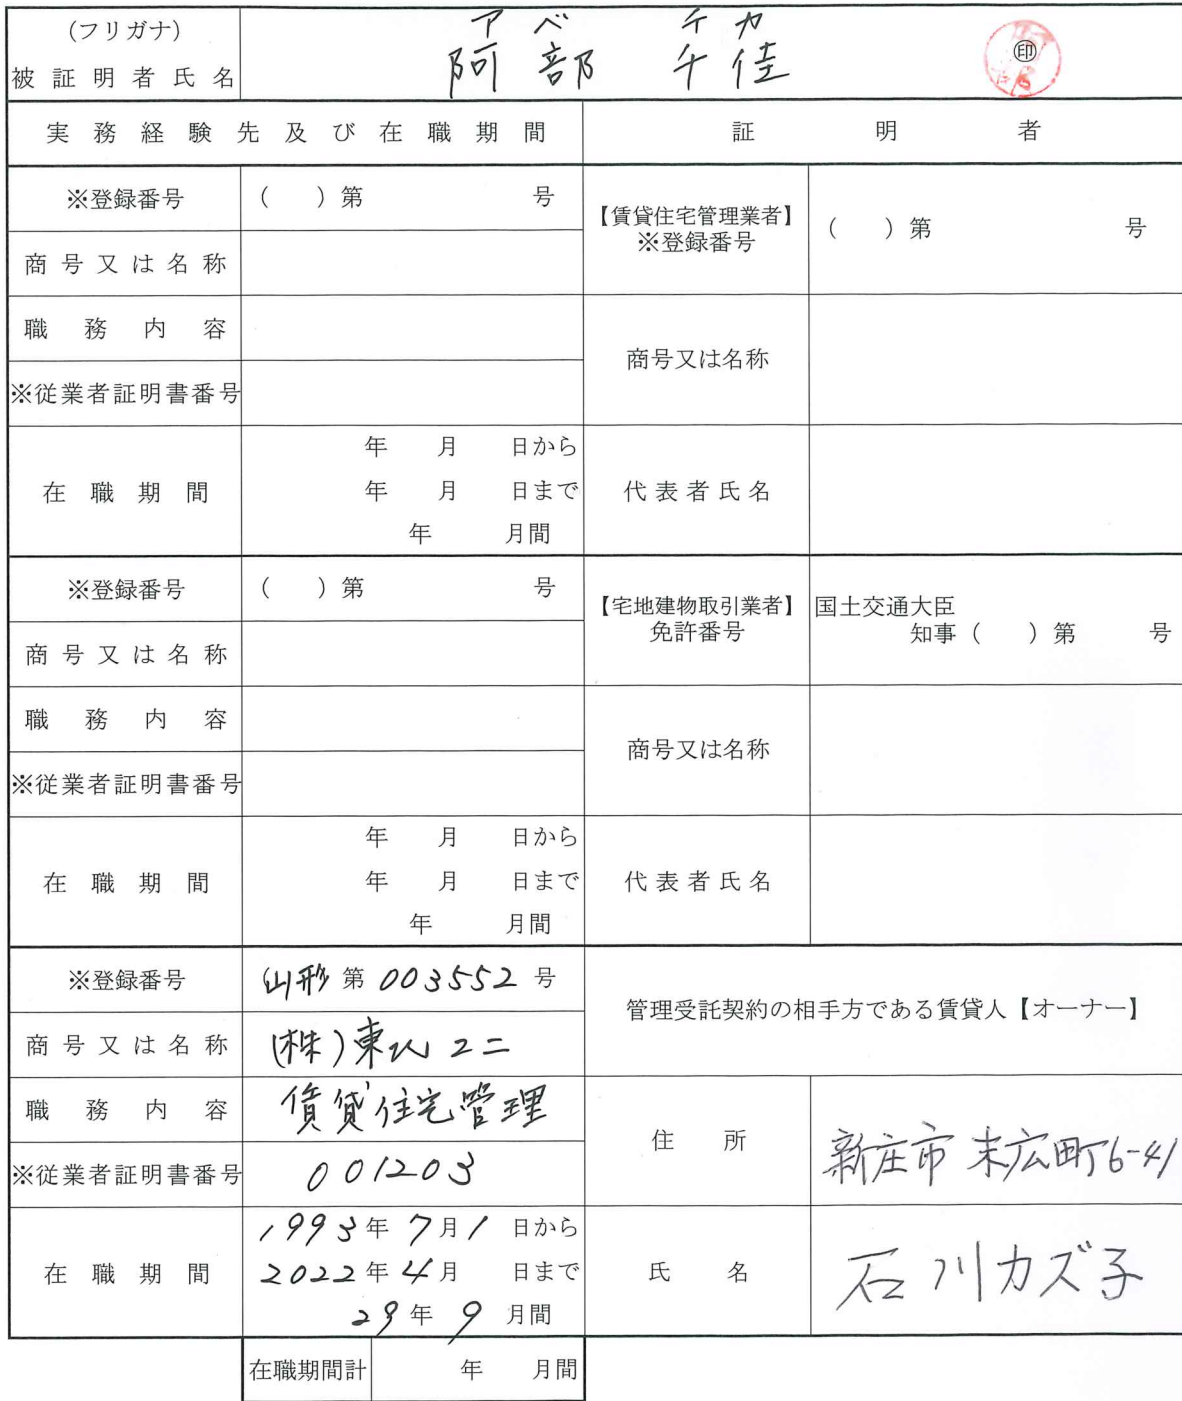 (フリガナ) アベ チカ
被証明者氏名 阿部 千佳 ㊞
実務経験先及び在職期間 証明者
※登録番号 ( )第 号
【賃貸住宅管理業者】
※登録番号 ( )第 号
商号又は名称
職務内容
商号又は名称
※従業者証明書番号
在職期間
年 月 日から
年 月 日まで
年 月間
代表者氏名
※登録番号 ( )第 号
【宅地建物取引業者】
免許番号
国土交通大臣
知事( )第 号
商号又は名称
職務内容
商号又は名称
※従業者証明書番号
在職期間
年 月 日から
年 月 日まで
年 月間
代表者氏名
※登録番号 山形 第 003552 号
管理受託契約の相手方である賃貸人【オーナー】
商号又は名称 (株)東 ユニ
職務内容 賃貸住宅管理
※従業者証明書番号 001203
住所 新庄市末広町6-41
在職期間
1993年7月1日から
2022年4月 日まで
29年9月間
氏名 石川カズ子
在職期間計 年 月間